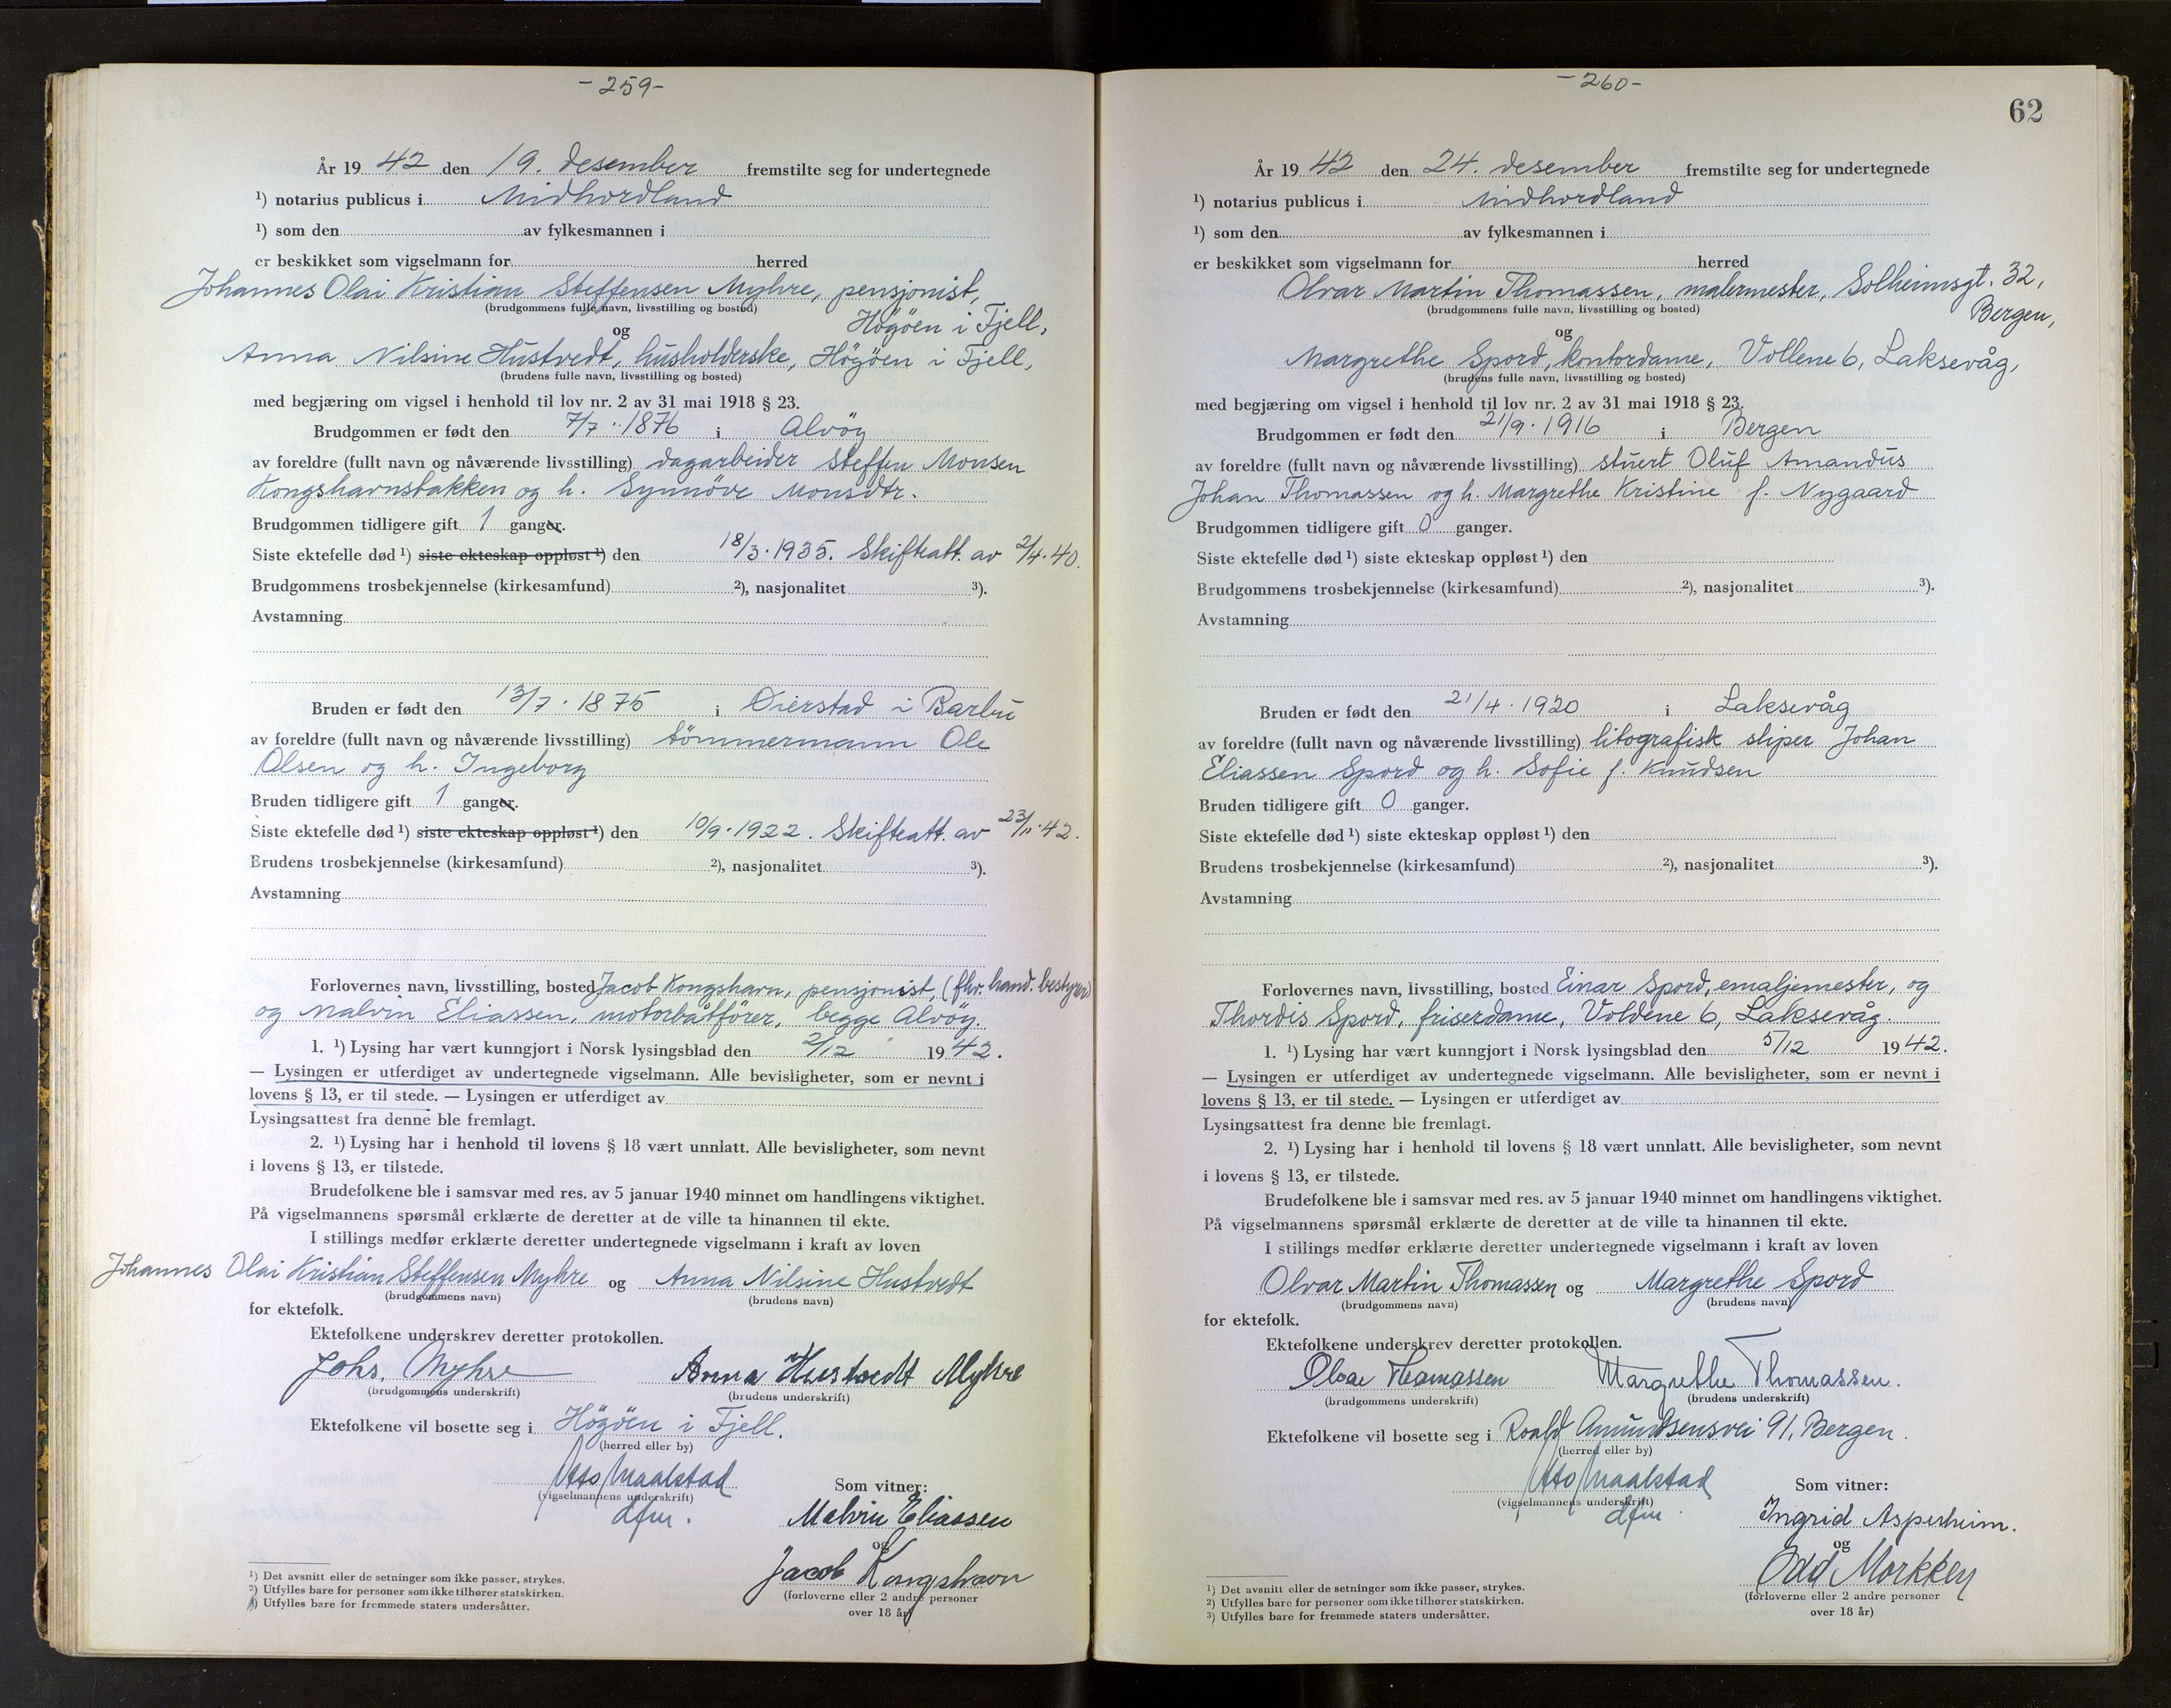 - 259 -
År 19 42 den 19. desember fremstilte seg for undertegnede
¹) notarius publicus i Midhordland
¹) som den av fylkesmannen i
er beskikket som vigselmann for herred
Johannes Olai Kristian Steffensen Myhre, pensjonist,
(brudgommens fulle navn, livsstilling og bosted)
Högöen i Fjell,
og
Anna Nilsine Hustvedt, husholderske, Högöen i Fjell,
(brudens fulle navn, livsstilling og bosted)
med begjæring om vigsel i henhold til lov nr. 2 av 31 mai 1918 § 23.
Brudgommen er født den 7/7 . 1876 i Alvöy
av foreldre (fullt navn og nåværende livsstilling) dagarbeider Steffen Monsen
Kongshavnsbakken og h. Synnöve Monsdtr.
Brudgommen tidligere gift 1 ganger.
Siste ektefelle død ¹) siste ekteskap oppløst ¹) den 18/3.1935. Skifteatt. av 2/4.40.
Brudgommens trosbekjennelse (kirkesamfund) ²), nasjonalitet ³).
Avstamning
Bruden er født den 13/7 . 1875 i Øierstad i Barbu
av foreldre (fullt navn og nåværende livsstilling) tömmermann Ole
Olsen og h. Ingeborg
Bruden tidligere gift 1 ganger.
Siste ektefelle død ¹) siste ekteskap oppløst ¹) den 10/9.1922. Skifteatt. av 23/11.42.
Brudens trosbekjennelse (kirkesamfund) ²), nasjonalitet ³).
Avstamning
Forlovernes navn, livsstilling, bosted Jacob Kongshavn, pensjonist, (fhv. hand. bestyrer)
og Malvin Eliassen, motorbåtförer, begge Alvöy.
1. ¹) Lysing har vært kunngjort i Norsk lysingsblad den 2/12 19 42.
— Lysingen er utferdiget av undertegnede vigselmann. Alle bevisligheter, som er nevnt i
lovens § 13, er til stede. — Lysingen er utferdiget av
Lysingsattest fra denne ble fremlagt.
2. ¹) Lysing har i henhold til lovens § 18 vært unnlatt. Alle bevisligheter, som nevnt
i lovens § 13, er tilstede.
Brudefolkene ble i samsvar med res. av 5 januar 1940 minnet om handlingens viktighet.
På vigselmannens spørsmål erklærte de deretter at de ville ta hinannen til ekte.
I stillings medfør erklærte deretter undertegnede vigselmann i kraft av loven
Johannes Olai Kristian Steffensen Myhre og Anna Nilsine Hustvedt
(brudgommens navn) (brudens navn)
for ektefolk.
Ektefolkene underskrev deretter protokollen.
Johs. Myhre Anna Hustvedt Myhre
(brudgommens underskrift) (brudens underskrift)
Ektefolkene vil bosette seg i Högöen i Fjell.
(herred eller by)
Otto Maalstad
(vigselmannens underskrift)
dfm.
Som vitner:
Malvin Eliassen
og
Jacob Kongshavn
(forloverne eller 2 andre personer
over 18 år)
¹) Det avsnitt eller de setninger som ikke passer, strykes.
²) Utfylles bare for personer som ikke tilhører statskirken.
³) Utfylles bare for fremmede staters undersåtter.
- 260 -
62
År 19 42 den 24. desember fremstilte seg for undertegnede
¹) notarius publicus i Midhordland
¹) som den av fylkesmannen i
er beskikket som vigselmann for herred
Olvar Martin Thomassen, malermester, Solheimsgt. 32,
(brudgommens fulle navn, livsstilling og bosted)
Bergen,
og
Margrethe Spord, kontordame, Vollene 6, Laksevåg,
(brudens fulle navn, livsstilling og bosted)
med begjæring om vigsel i henhold til lov nr. 2 av 31 mai 1918 § 23.
Brudgommen er født den 21/9 . 1916 i Bergen
av foreldre (fullt navn og nåværende livsstilling) stuert Oluf Amandus
Johan Thomassen og h. Margrethe Kristine f. Nygaard
Brudgommen tidligere gift 0 ganger.
Siste ektefelle død ¹) siste ekteskap oppløst ¹) den
Brudgommens trosbekjennelse (kirkesamfund) ²), nasjonalitet ³).
Avstamning
Bruden er født den 21/4 . 1920 i Laksevåg
av foreldre (fullt navn og nåværende livsstilling) litografisk sliper Johan
Eliassen Spord og h. Sofie f. Knudsen
Bruden tidligere gift 0 ganger.
Siste ektefelle død ¹) siste ekteskap oppløst ¹) den
Brudens trosbekjennelse (kirkesamfund) ²), nasjonalitet ³).
Avstamning
Forlovernes navn, livsstilling, bosted Einar Spord, emaljemester, og
Thordis Spord, friserdame, Voldene 6, Laksevåg.
1. ¹) Lysing har vært kunngjort i Norsk lysingsblad den 5/12 19 42.
— Lysingen er utferdiget av undertegnede vigselmann. Alle bevisligheter, som er nevnt i
lovens § 13, er til stede. — Lysingen er utferdiget av
Lysingsattest fra denne ble fremlagt.
2. ¹) Lysing har i henhold til lovens § 18 vært unnlatt. Alle bevisligheter, som nevnt
i lovens § 13, er tilstede.
Brudefolkene ble i samsvar med res. av 5 januar 1940 minnet om handlingens viktighet.
På vigselmannens spørsmål erklærte de deretter at de ville ta hinannen til ekte.
I stillings medfør erklærte deretter undertegnede vigselmann i kraft av loven
Olvar Martin Thomassen og Margrethe Spord
(brudgommens navn) (brudens navn)
for ektefolk.
Ektefolkene underskrev deretter protokollen.
Olvar Thomassen Margrethe Thomassen.
(brudgommens underskrift) (brudens underskrift)
Ektefolkene vil bosette seg i Roald Amundsensvei 91, Bergen.
(herred eller by)
Otto Maalstad
(vigselmannens underskrift)
dfm.
Som vitner:
Ingrid Asperheim.
og
Odd Morkken
(forloverne eller 2 andre personer
over 18 år)
¹) Det avsnitt eller de setninger som ikke passer, strykes.
²) Utfylles bare for personer som ikke tilhører statskirken.
³) Utfylles bare for fremmede staters undersåtter.